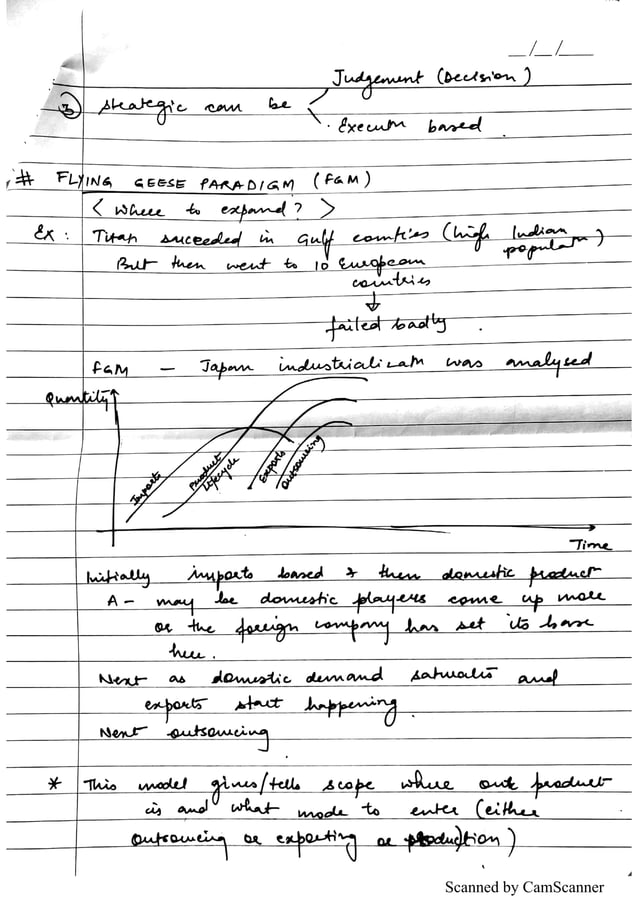 __/__/__
Judgement (Decision)
③ strategic can be
Executn based
# FLYING GEESE PARADIGM (FGM)
< where to expand? >
Ex : Titan succeeded in Gulf countries (high Indian populatn)
But then went to 10 European
countries
↓
failed badly.
FGM — Japan industrializatn was analysed
Quantity
Imports
Product
Lifecycle
Exports
Outsourcing
Time
Initially imports based & then domestic product
A - may be domestic players come up more
or the foreign company has set its base
here.
Next as domestic demand saturates and
exports start happening.
Next outsourcing
* This model gives/tells scope where our product
is and what mode to enter (either
outsourcing or exporting or production)
Scanned by CamScanner